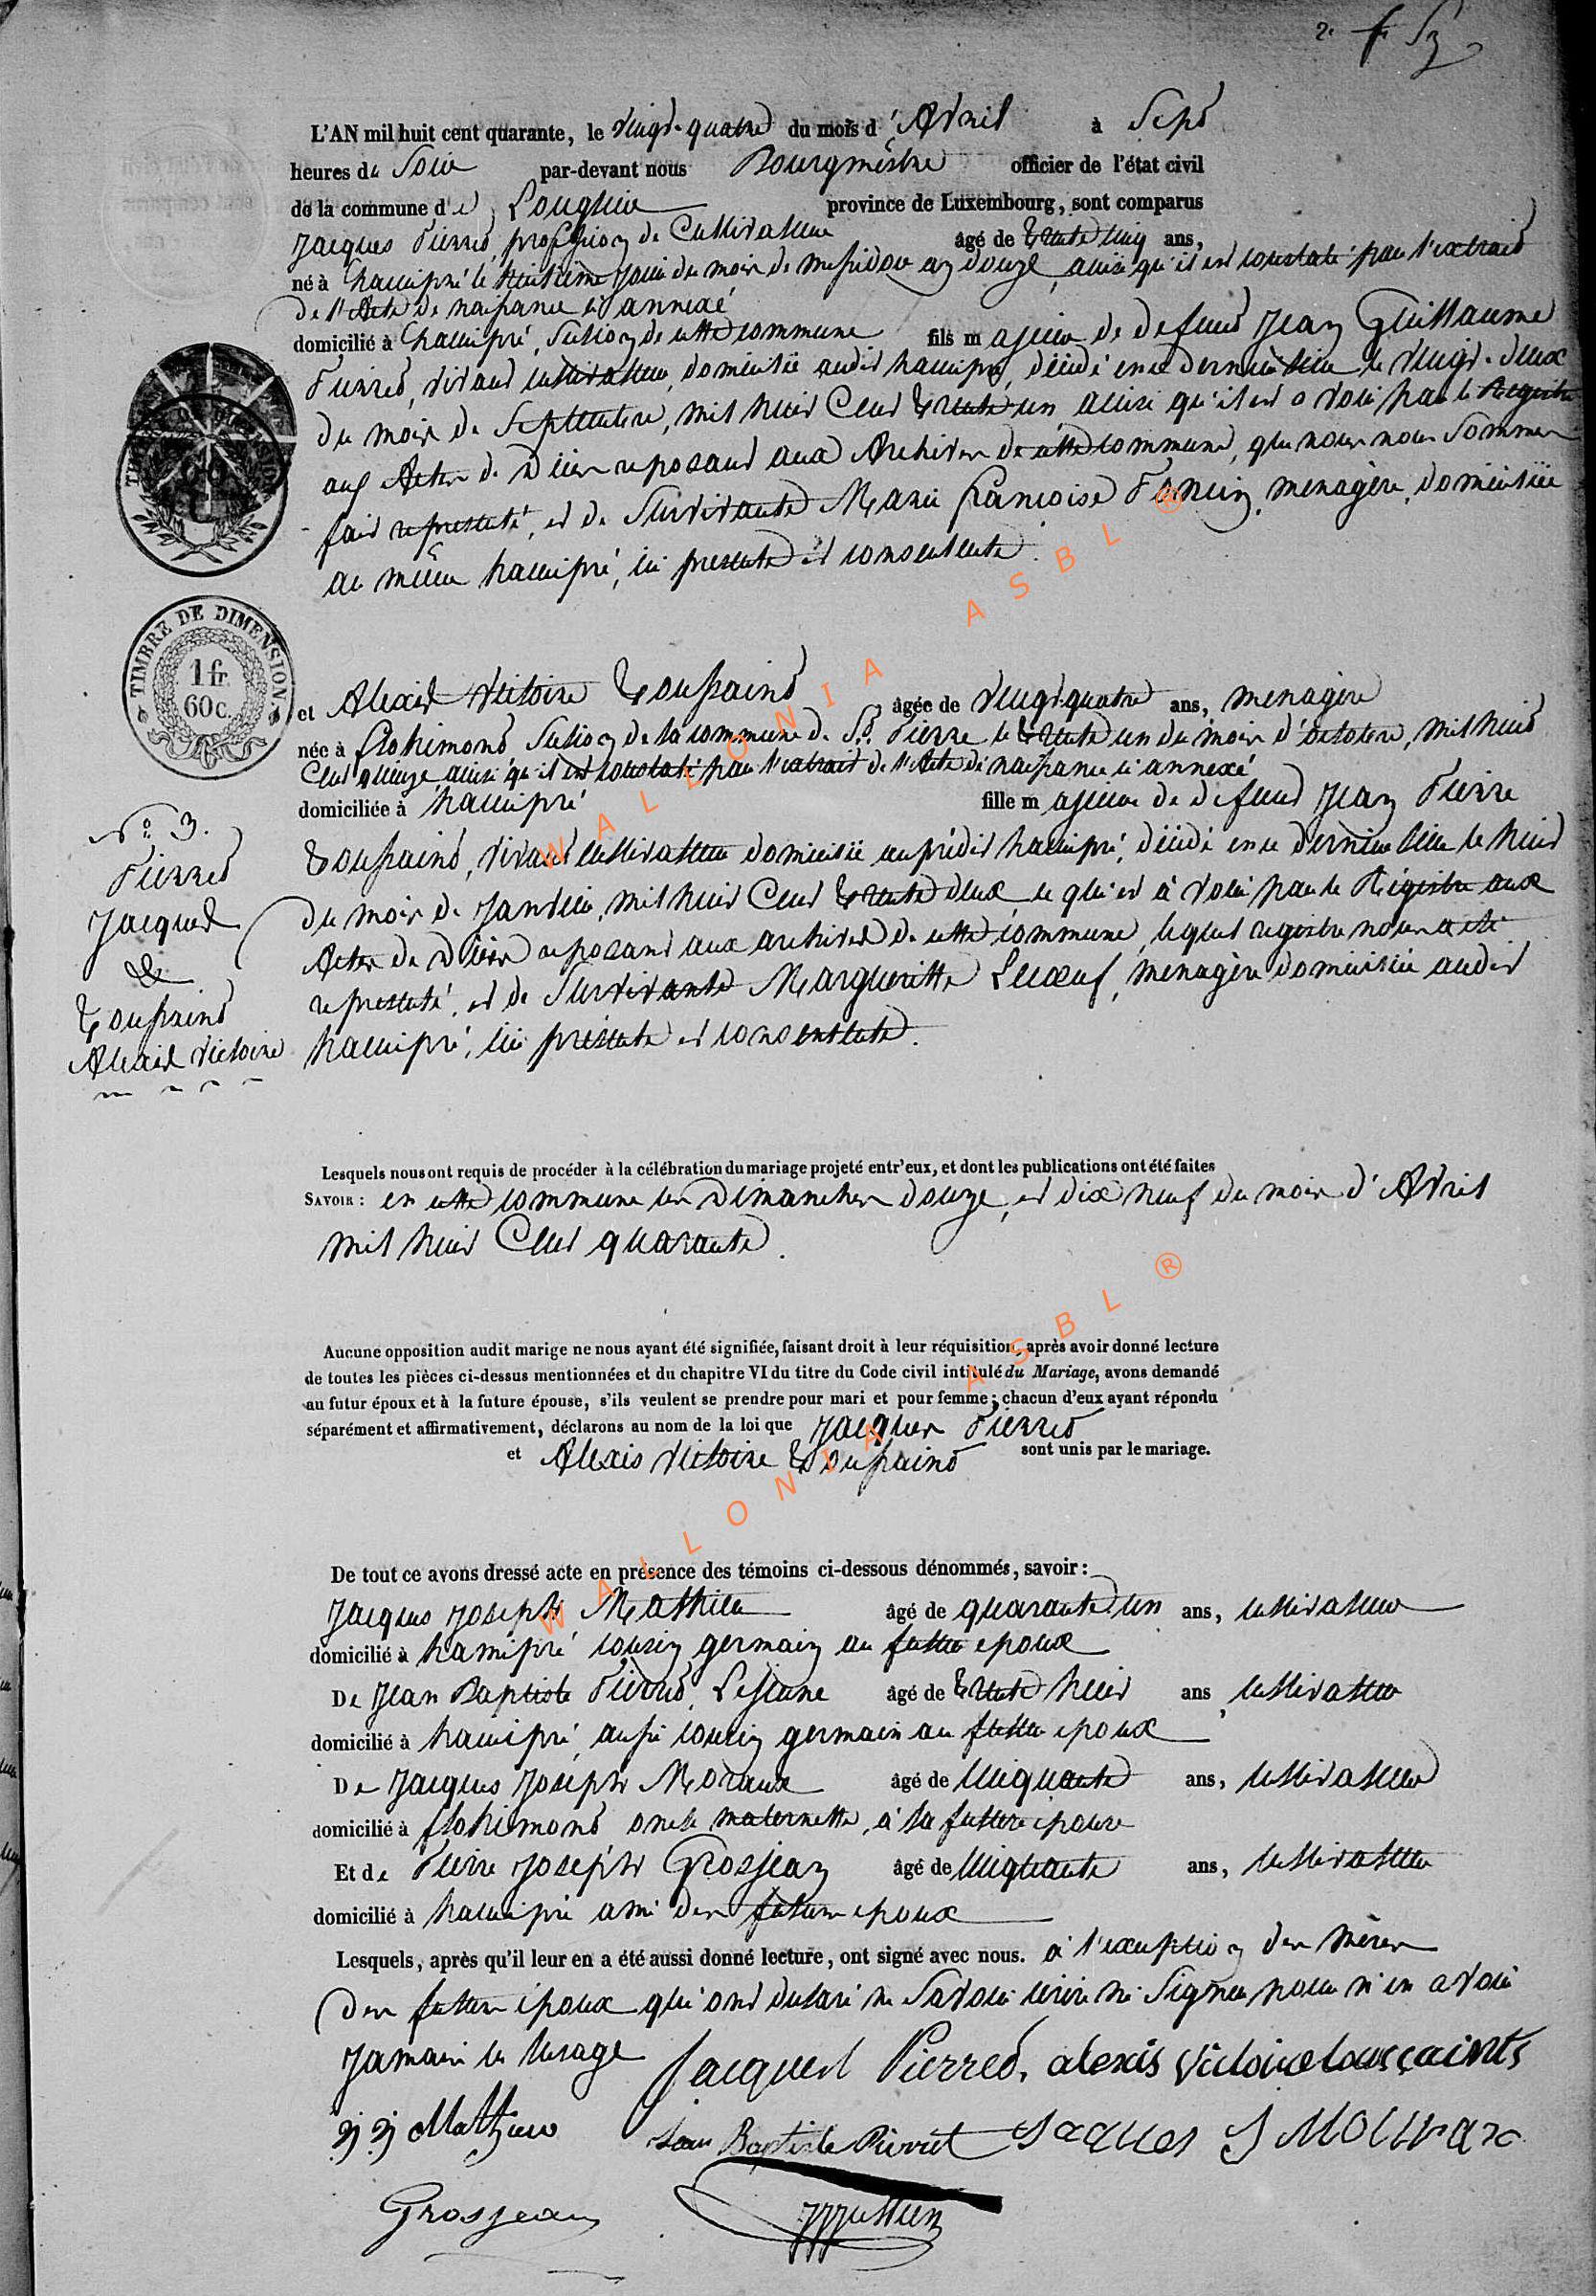 L'AN mil huit cent quarante, le vingt-quatre du mois d'Avril à Sept
heures du Soir par-devant nous Bourgmestre officier de l'état civil
de la commune de Longlier province de Luxembourg, sont comparus
Jacques Pierret, profession de Cultivateur âgé de trente cinq ans,
né à hamipré le huitième jour du mois de messidor an douze, ainsi qu'il est constaté par l'extrait
de l'Acte de naissance ci annexé
domicilié à hamipré, Section de cette commune fils majeur de defunt Jean Guillaume
Pierret, vivant cultivateur, domicilié audit hamipré, décédé en ce dernier lieu le vingt-deux
du mois de Septembre, mil huit Cent trente un ainsi qu'il est a voir par le Registre
aux Actes de Décès reposant aux Archives de cette commune, que nous nous Sommes
fait representé, et de Survivante Marie françoise menagère, domiciliée
au même hamipré, ici presente et consentente.
TIMBRE DE DIMENSION
1 fr.
60 c.
et Alexis Victoire Toussaint âgée de vingt-quatre ans, menagère
née à flohimont Section de la commune de St. Pierre le trente un du mois d'octobre, mil huit
Cent quinze, ainsi qu'il est constaté par l'extrait de l'Acte de naissance ci annexé
domiciliée à hamipré fille majeure de defunt Jean Pierre
Toussaint, vivant cultivateur domicilié au prédit hamipré, décédé en ce dernier lieu le huit
du mois de Janvier, mil huit Cent trente deux, ce qui est à voir par le Régistre aux
Actes de Décès reposant aux archives de cette commune, lequel registre nous a été
representé, et de Survivante Margueritte Lecoeuf, menagère domiciliée audit
hamipré, ici présente et consentente.
No. 3.
Pierret
Jacques
&
Toussaint
Alexis Victoire
Lesquels nous ont requis de procéder à la célébration du mariage projeté entr'eux, et dont les publications ont été faites
SAVOIR : en cette commune les Dimanches douze, et dix neuf du mois d'Avril
mil huit Cent quarante.
Aucune opposition audit marige ne nous ayant été signifiée, faisant droit à leur réquisition, après avoir donné lecture
de toutes les pièces ci-dessus mentionnées et du chapitre VI du titre du Code civil intitulé du Mariage, avons demandé
au futur époux et à la future épouse, s'ils veulent se prendre pour mari et pour femme ; chacun d'eux ayant répondu
séparément et affirmativement, déclarons au nom de la loi que Jacques Pierret
et Alexis Victoire Toussaint sont unis par le mariage.
De tout ce avons dressé acte en présence des témoins ci-dessous dénommés, savoir :
Jacques Joseph Mathieu âgé de quarante un ans, cultivateur
domicilié à hamipré cousin germain au futur epoux
De Jean Baptiste Pierret, Lejeune âgé de trente huit ans, cultivateur
domicilié à hamipré, aussi cousin germain au futur epoux
De Jacques Joseph Moraux âgé de cinquante ans, cultivateur
domicilié à flohimont oncle maternelle, à la future épouse
Et de Pierre Joseph Grosjean âgé de cinquante ans, cultivateur
domicilié à hamipré ami des futurs epoux
Lesquels, après qu'il leur en a été aussi donné lecture, ont signé avec nous. à l'exception des mères
des futurs époux qui ont declaré ne Savoir écrire ni Signer pour n'en avoir
Jamais eu l'usage
Jacques Pierret. alexis victoire tousçaints
JJ Mathieu
Jean Baptiste Pierret Jacques J
Grosjean
WALLONIA ASBL ®
WALLONIA ASBL ®